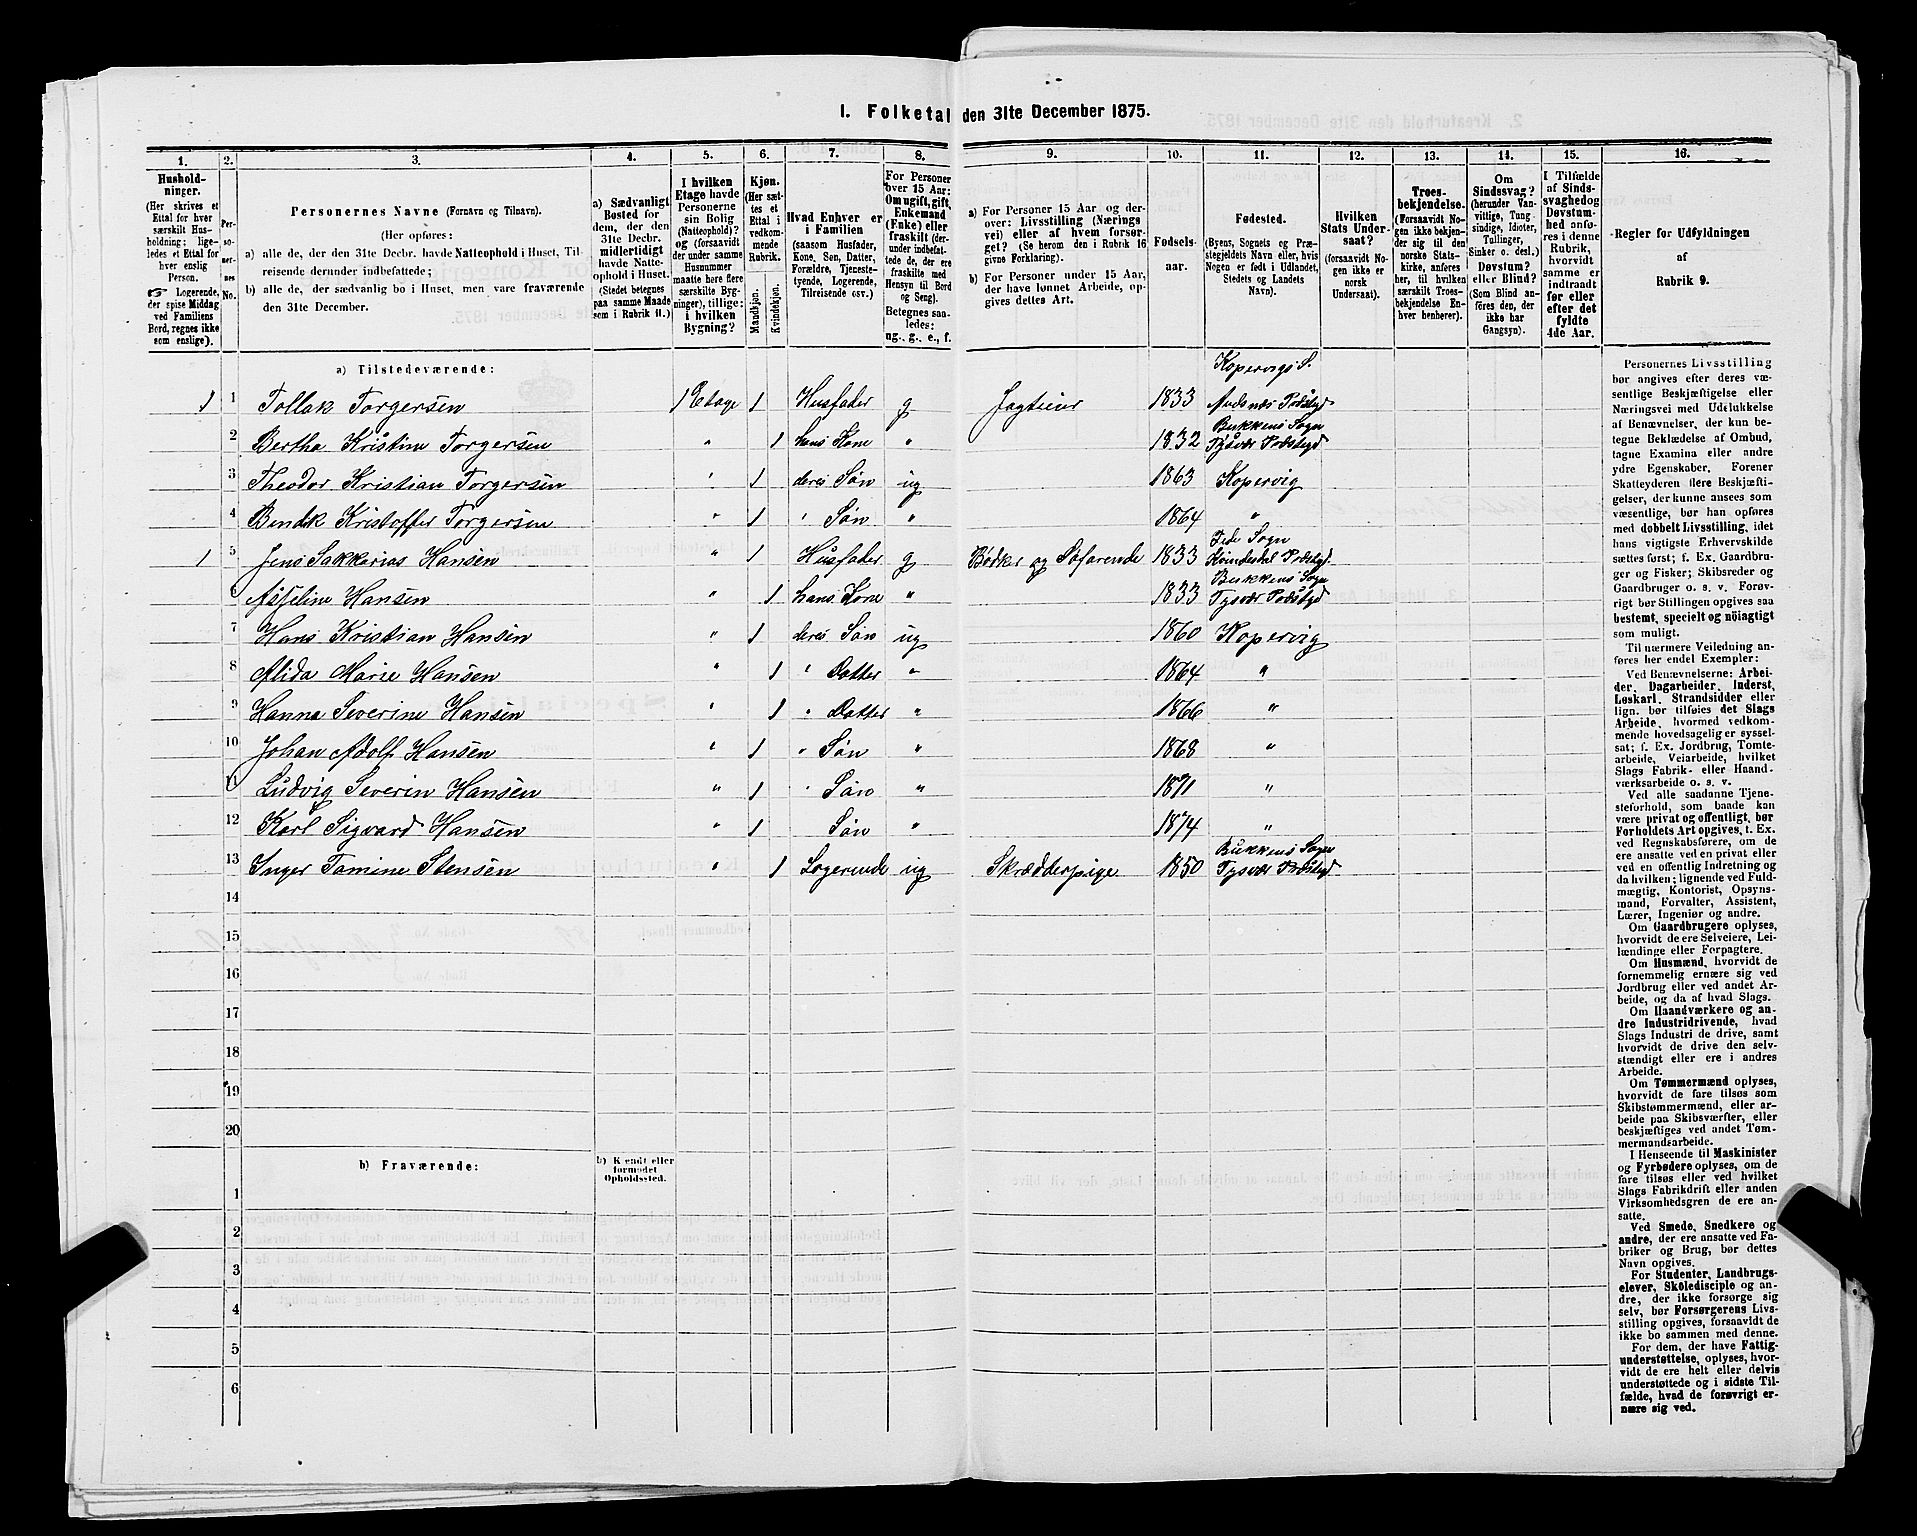 I. Folketal den 31te December 1875.
1. 2. 3. 4. 5. 6. 7. 8. 9. 10. 11. 12. 13. 14. 15. 16.
Husholdninger.
(Her skrives et
Ettal for hver
særskilt Husholdning; ligeledes
et Ettal for
hver enslig
Person.
☞ Logerende,
der spise Middag
ved Familiens
Bord, regnes ikke
som enslige).
Personernes No.
Personernes Navne (Fornavn og Tilnavn).
(Her opføres:
a) alle de, der den 31te Decbr. havde Natteophold i Huset, Tilreisende
derunder indbefattede;
b) alle de, der sædvanlig bo i Huset, men vare fraværende
den 31te December.
a) Sædvanligt
Bosted for
dem, der den
31te Decbr.
midlertidigt
havde Natteophold
i Huset.
(Stedet betegnes
paa samme Maade
som i Rubrik 11.)
I hvilken
Etage havde
Personerne
sin Bolig
(Natteophold)?
og (forsaavidt
der under samme
Husnummer
maatte høre flere
særskilte Bygninger),
tillige:
i hvilken
Bygning?
Kjøn.
(Her sættes
et
Ettal i
vedkommende
Rubrik.
Mandkjøn.
Kvindekjøn.
Hvad Enhver er
i Familien
(saasom Husfader,
Kone, Søn, Datter,
Forældre, Tjenestetyende,
Logerende,
Tilreisende osv.)
For Personer
over 15 Aar:
Om ugift, gift,
Enkemand
(Enke) eller
fraskilt (derunder
indbefattede
de, der ere
fraskilte med
Hensyn til Bord
og Seng).
Betegnes saaledes:
ug., g., e., f.
a) For Personer 15 Aar og derover:
Livsstilling (Næringsvei)
eller af hvem forsørget?
(Se herom den i Rubrik 16
givne Forklaring).
b) For Personer under 15 Aar,
der have lønnet Arbeide, opgives
dettes Art.
Fødselsaar.
Fødested.
(Byens, Sognets og Præstegjeldets
Navn eller, hvis
Nogen er født i Udlandet,
Stedets og Landets
Navn).
Hvilken
Stats Undersaat?
(forsaavidt Nogen
ikke er
norsk
Undersaat).
Troesbekjendelse.
(Forsaavidt Nogen
ikke bekjender
sig til den
norske Statskirke,
anføres
her, til hvilken
særskilt Troesbekjendelse
Enhver
benhører).
Om
Sindssvag?
(herunder Vanvittige,
Tungsindige,
Idioter,
Tullinger,
Sinker o. desl.)
Døvstum?
eller Blind?
(Som Blind anføres
den, der
ikke har
Gangsyn).
I Tilfælde
af Sindssvaghed
og
Døvstumhed
anføres
i denne
Rubrik,
hvorvidt
samme er
indtraadt
før eller
efter det
fyldte
4de Aar.
Regler for Udfyldningen
af
Rubrik 9.
a) Tilstedeværende:
Kopervigs S.
1 1 Tollak Torgersen 1 Etage 1 Husfader g Jagteier 1833 Præstgd
Bukkens Sogn
2 Bertha Kristine Torgersen " 1 hans Kone " 1832 Tysvær Præstgd
3 Theodor Kristian Torgersen " 1 deres Søn ug 1863 Kopervig
4 Bendik Kristoffer Torgersen " 1 " Søn " 1864 "
Fede Sogn
1 5 Jens Sakkarias Hansen " 1 Husfader g Bødker og Søfarende 1833 Kvindesdal Præstgd
Bukkens Sogn
6 Asseline Hansen " 1 hans Kone " 1833 Tysvær Præstgd
7 Hans Kristian Hansen " 1 deres Søn ug 1860 Kopervig
8 Alida Marie Hansen " 1 " Datter " 1864 "
9 Hanna Severine Hansen " 1 " Datter " 1866 "
10 Johan Adolf Hansen " 1 " Søn " 1868 "
11 Ludvig Severin Hansen " 1 " Søn " 1871 "
12 Karl Sigvard Hansen " 1 Søn " 1874 "
Bukkens Sogn
13 Inger Tamine Stensen " 1 Logerende ug Skrædderpige 1850 Tysvær Præstgd
14
15
16
17
18
19
20
b) Fraværende:
b) Kjendt eller
formodet
Opholdssted.
1
2
3
4
5
6
Personernes Livsstilling
bør angives efter deres væsentlige
Beskjæftigelse eller
Næringsvei med Udelukkelse
af Benævnelser, der kun betegne
Beklædelse af Ombud,
tagne Examina eller andre
ydre Egenskaber. Forener
Skatteyderen flere Beskjæftigelser,
der kunne ansees som
væsentlige, bør han opføres
med dobbelt Livsstilling, idet
hans vigtigste Erhvervskilde
sættes først; f. Ex. Gaardbruger
og Fisker; Skibsreder og
Gaardbruger o. s. v. Forøvrigt
bør Stillingen opgives saa
bestemt, specielt og nøiagtigt
som muligt.
Til nærmere Veiledning anføres
her endel Exempler:
Ved Benævnelserne: Arbeider,
Dagarbeider, Inderst,
Løskarl, Strandsidder eller
lign. bør tilføies det Slags
Arbeide, hvormed vedkommende
hovedsagelig er sysselsat;
f. Ex. Jordbrug, Tomtearbeide,
Veiarbeide, hvilket
Slags Fabrik- eller Haandværksarbeide
o. s. v.
Ved alle saadanne Tjenesteforhold,
som baade kan
være privat og offentligt, bør
Forholdets Art opgives, t. Ex.
ved Regnskabsførere, om de
ere ansatte ved en privat eller
ved en offentlig Indretning og
da hvilken; lignende ved Fuldmægtig,
Kontorist, Opsynsmand,
Forvalter, Assistent,
Lærer, Ingeniør og andre.
Om Gaardbrugere oplyses,
hvorvidt de ere Selveiere, Leilændinge
eller Forpagtere.
Om Husmænd, hvorvidt de
fornemmelig ernære sig ved
Jordbrug eller ved andet Arbeide,
og da af hvad Slags.
Om Haandværkere og andre
Industridrivende, hvad
Slags Industri de drive, samt
hvorvidt de drive den selvstændigt
eller ere i andres
Arbeide.
Om Tømmermænd oplyses,
hvorvidt de fare tilsøs som
Skibstømmermænd, eller arbeide
paa Skibsværfter, eller
beskjæftiges ved andet Tømmermandsarbeide.
I Henseende til Maskinister
og Fyrbødere oplyses, om de
fare tilsøs eller ved hvilket
Slags Fabrikdrift eller anden
Virksomhedsgren de ere ansatte.
Ved Smede, Snedkere og
andre, der ere ansatte ved Fabriker
og Brug, bør dettes
Navn opgives.
For Studenter, Landbrugselever,
Skoledisciple og andre,
der ikke forsørge sig
selv, bør Forsørgerens Livsstilling
opgives, forsaavidt de
ikke bo sammen med denne.
For dem, der have Fattigunderstøttelse,
oplyses, hvorvidt
de ere helt eller delvis
understøttede og i sidste Tilfælde,
hvad de forøvrigt ernære
sig ved.